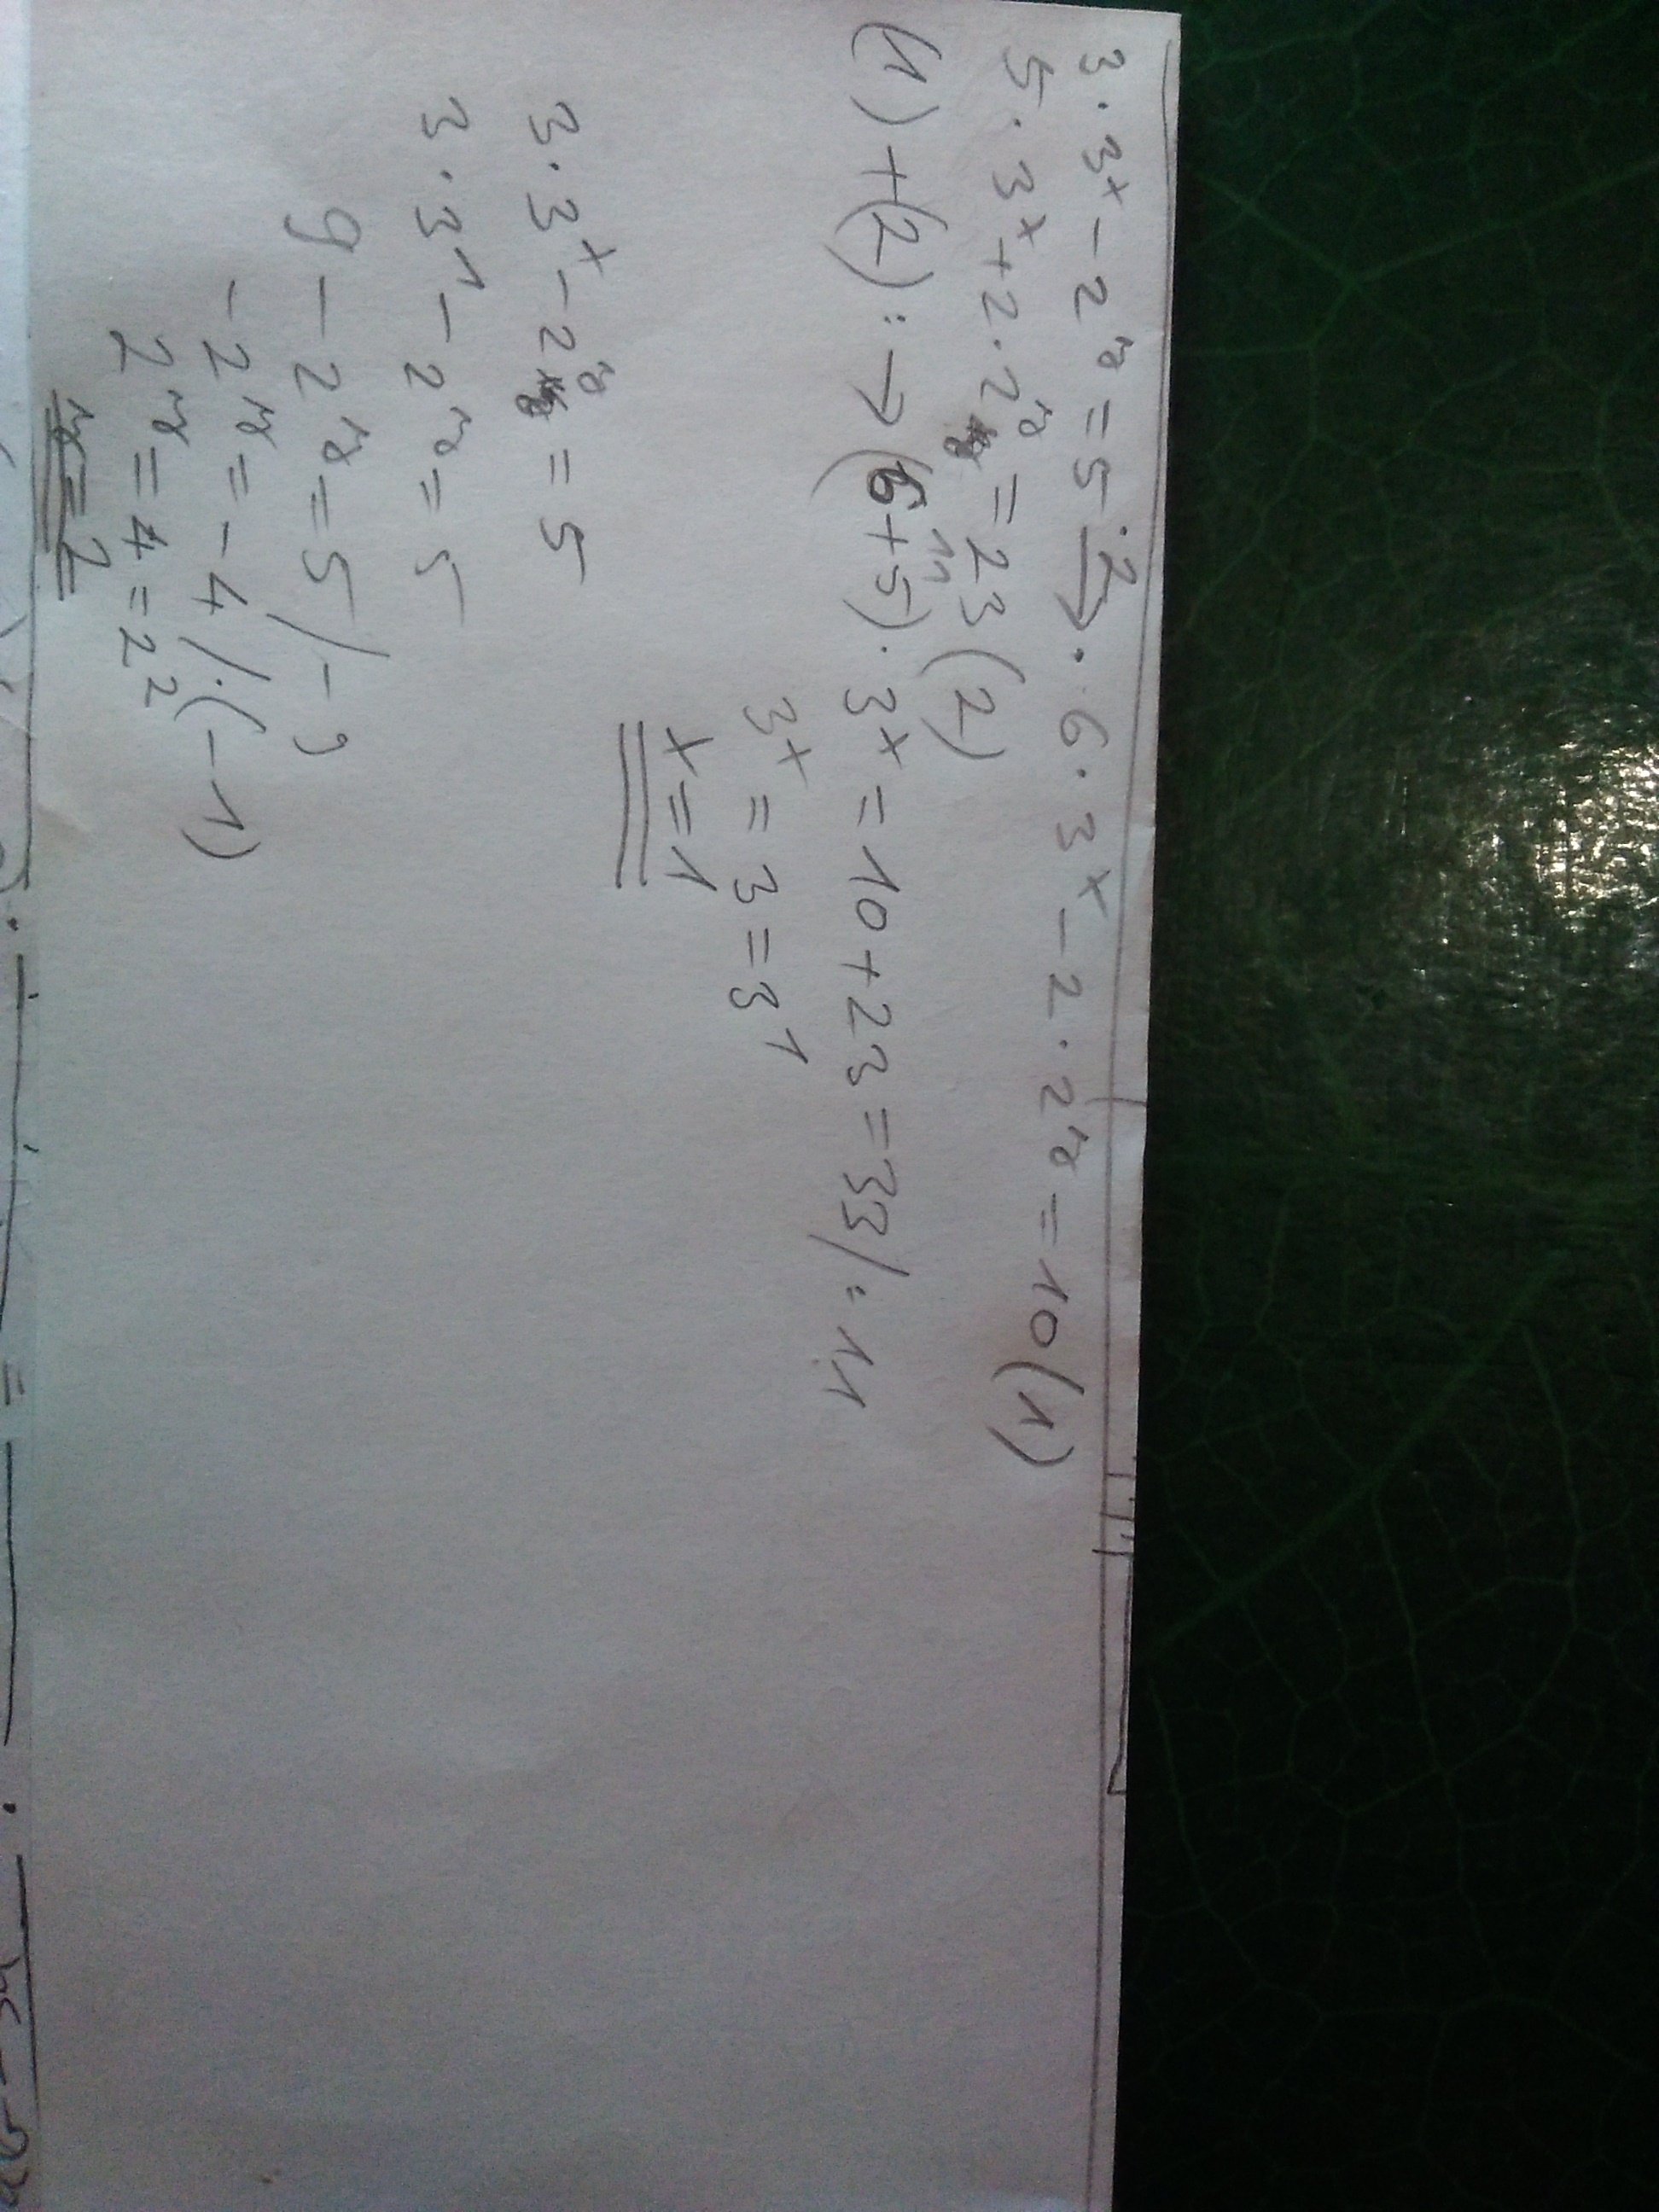 3·3ˣ - 2ʸ = 5 ·2→ · 6·3ˣ - 2·2ʸ = 10 (1)
5·3ˣ + 2·2ʸ = 23 (2)
11
(1) + (2): → (6+5)·3ˣ = 10 + 23 = 33 /:11
3ˣ = 3 = 3¹
x = 1
3·3ˣ - 2ʸ = 5
3·3¹ - 2ʸ = 5
9 - 2ʸ = 5 / -9
-2ʸ = -4 /·(-1)
2ʸ = 4 = 2²
y = 2